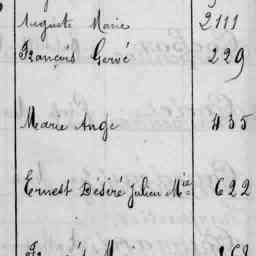 Auguste Marie 2111
François Gervé 229
Marie Ange 435
Ernest Désiré Julien Mie 622